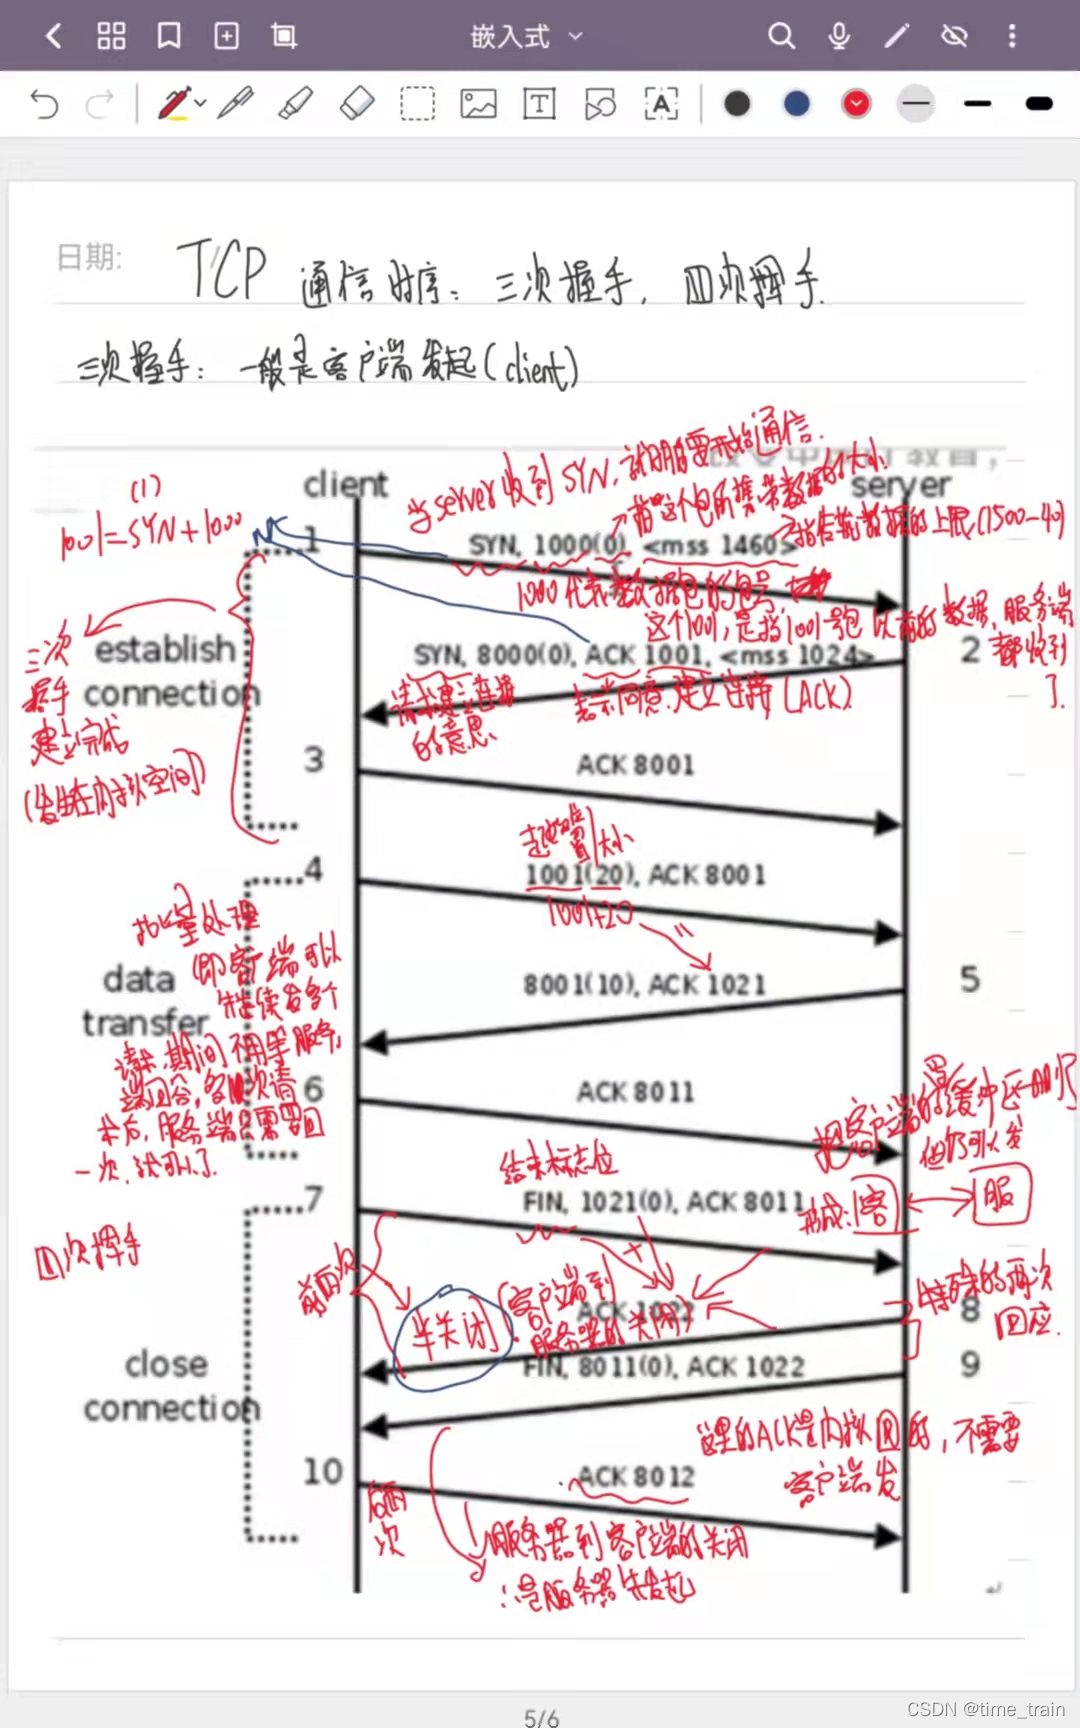 嵌入式
日期:
TCP 通信时序：三次握手，四次挥手.
三次握手：一般是客户端发起(client)
client
server
当server收到SYN,就明要开始通信.
指这个包所携带数据的大小
(1)
1001=SYN+1000
1
SYN, 1000(0), <mss 1460>
指传输数据的上限(1500-40)
1000代表数据包的包号,
这个1001,是指1001号包以前的数据,服务端都收到了.
establish
connection
三次
握手
建立完成
(发生在内核空间)
SYN, 8000(0), ACK 1001, <mss 1024>
2
请求建立连接
的意思
表示同意建立连接(ACK)
3
ACK 8001
起始位置
大小
4
1001(20), ACK 8001
1001+20
批量处理
(即客户端可以
继续发多个
请求,期间不用等服务
端回答,多次请
求后,服务端只需要回
一次,就可以了.
data
transfer
8001(10), ACK 1021
5
6
ACK 8011
把客户端的写缓冲区一册了
但仍可以发
结束标志位
7
FIN, 1021(0), ACK 8011
形成:客
服
四次挥手
前两次
半关闭
(客户端到
服务器的关闭)
ACK 1022
8
特殊的两次
回应.
close
connection
FIN, 8011(0), ACK 1022
9
这里的ACK是内核回的,不需要
客户端发
10
ACK 8012
后两次
服务器到客户端的关闭
∴是服务器先发起
5/6
CSDN @time_train